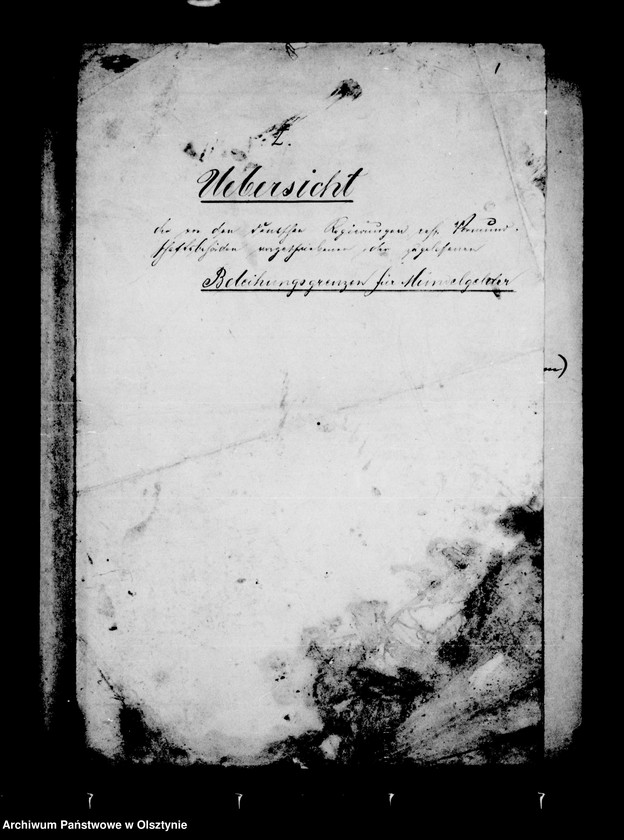 1
2.
Uebersicht
der von den deutschen Regierungen resp. Vormund-
schaftsbehörden vorgeschriebenen oder zugelassenen
Beleihungsgrenzen für Mündelgelder
Archiwum Państwowe w Olsztynie